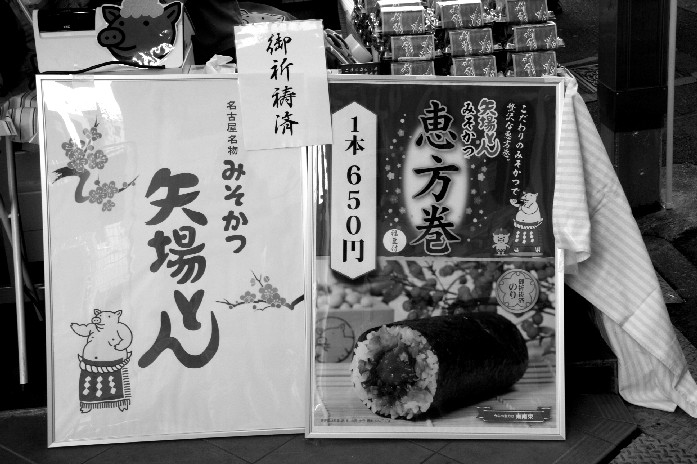 御祈祷済
名古屋名物
みそかつ
矢場とん
こだわりのみそかつで、
贅沢な恵方巻。
矢場とん
みそかつ
恵方巻
1本650円
御祈祷済
のり